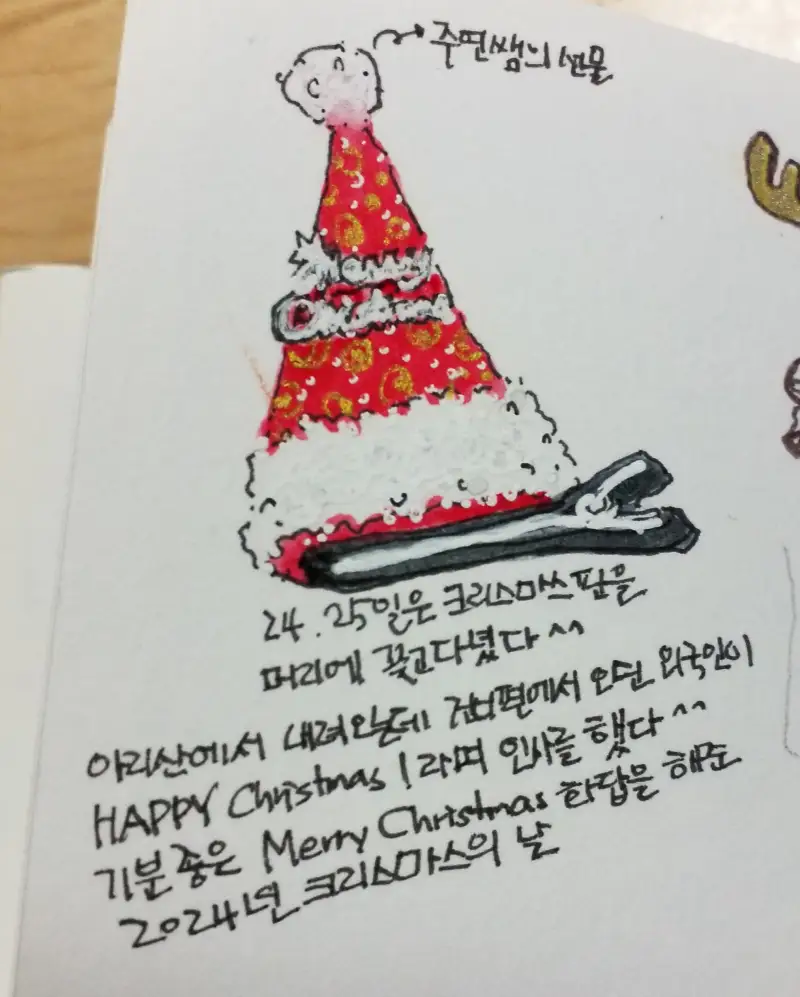 주연쌤의 선물
Merry
Christmas
24.25일은 크리스마스핀을
머리에 꽂고다녔다^^
아리산에서 내려오는데 건너편에서 오던 외국인이
HAPPY Christmas!라며 인사를 했다^^
기분좋은 Merry Christmas 화답을 해준
2024년 크리스마스의 날